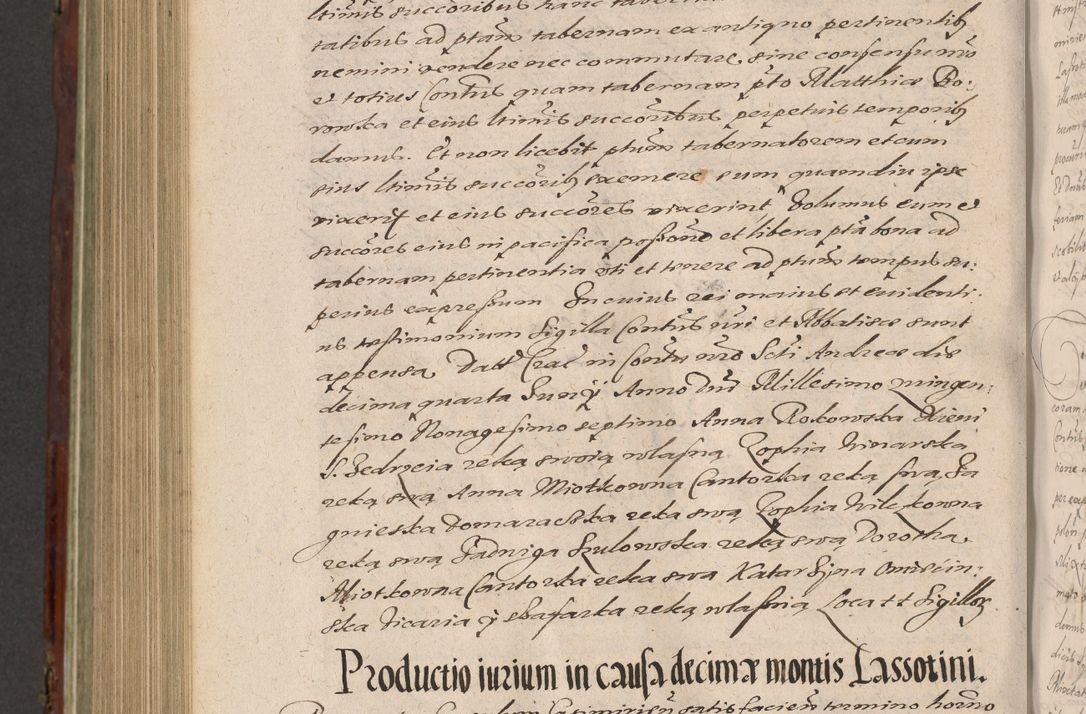 ltimis succoribus hanc
tatibus ad ptam tabernam ex antiquo pertinentib
nemini vendere nec commutare, sine consensu nro
et totius Contus quam tabernam pto Matthiæ Bo:
rowska et eius ltimis succoribus perpetuis temporib
damus. Et non licebit ptum tabernatorem et cum
eius ltimis succorib exemere eum quamdiu ipse
vixerit et eius succores vixerint, Volumus eum et
succores eius in pacifica possone et libera pta bona ad
tabernam pertinentia uti et tenere ad ptum tempus su:
perius expressum In cuius rei maius et evidenti:
us testimonium Sigilla Contus nri et Abbatissæ sunt
appensa, Datt Crac in Contu nro Scti Andreæ die
decima quarta Junij Anno Dni Millesimo quingen:
tesimo Nonagesimo septimo Anna Rokowska Xieni
S. Jedrzeia ręką swoią własną Zophia Winarska
ręką swą Anna Miotkowna Cantorka ręką swą, Ja
gnieska Domaraczka ręka swą Zophia Wilczkowna
ręką swą Jadwiga Szulowska ręką swą Dorotha
Miotkowna Cantorka ręka swą Katarzyna Omiecin:
ska Vicaria y szafarka ręką własną Loca tt Sigillor
Productio iurium in causa decimæ montis Lassotini.
Casimirien satisfacien termino horno